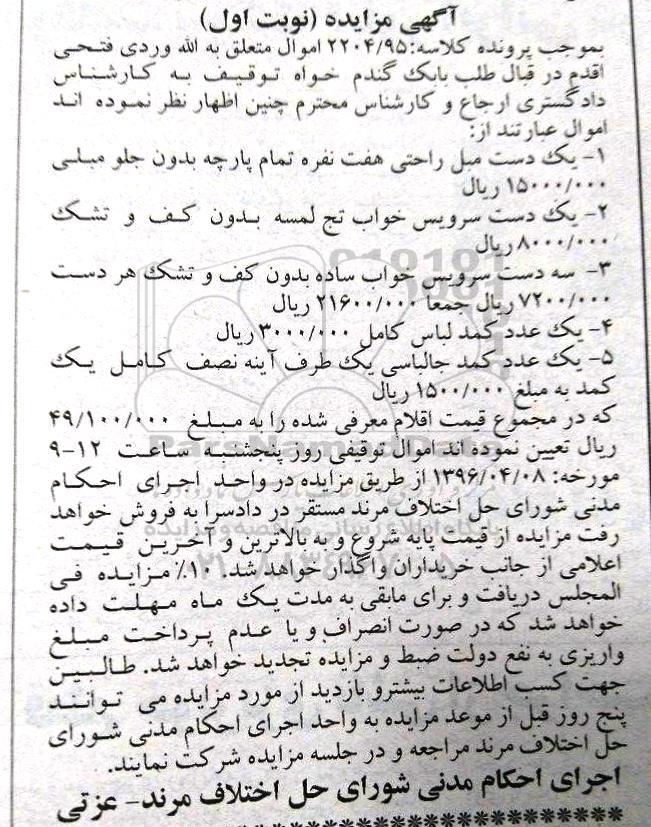 آگهی مزایده (نوبت اول)
بموجب پرونده کلاسه:۲۲۰۴/۹۵ اموال متعلق به الله وردی فتحی
اقدم در قبال طلب بابک گندم خواه توقیف به کارشناس
دادگستری ارجاع و کارشناس محترم چنین اظهار نظر نموده اند
اموال عبارتند از:
۱- یک دست مبل راحتی هفت نفره تمام پارچه بدون جلو مبلی
۱۵۰۰۰/۰۰۰ ریال
۲- یک دست سرویس خواب تج لمسه بدون کف و تشک
۸۰۰۰/۰۰۰ ریال
۳- سه دست سرویس خواب ساده بدون کف و تشک هر دست
۷۲۰۰/۰۰۰ ریال جمعا ۲۱۶۰۰/۰۰۰ ریال
۴- یک عدد کمد لباس کامل ۳۰۰۰/۰۰۰ ریال
۵- یک عدد کمد جالباسی یک طرف آینه نصف کامل یک
کمد به مبلغ ۱۵۰۰/۰۰۰ ریال
که در مجموع قیمت اقلام معرفی شده را به مبلغ ۴۹/۱۰۰/۰۰۰
ریال تعیین نموده اند اموال توقیفی روز پنجشنبه ساعت ۱۲-۹
مورخه: ۱۳۹۶/۰۴/۰۸ از طریق مزایده در واحد اجرای احکام
مدنی شورای حل اختلاف مرند مستقر در دادسرا به فروش خواهد
رفت مزایده از قیمت پایه شروع و به بالاترین و آخرین قیمت
اعلامی از جانب خریداران واگذار خواهد شد. ۱۰٪ مزایده فی
المجلس دریافت و برای مابقی به مدت یک ماه مهلت داده
خواهد شد که در صورت انصراف و یا عدم پرداخت مبلغ
واریزی به نفع دولت ضبط و مزایده تجدید خواهد شد. طالبین
جهت کسب اطلاعات بیشترو بازدید از مورد مزایده می توانند
پنج روز قبل از موعد مزایده به واحد اجرای احکام مدنی شورای
حل اختلاف مرند مراجعه و در جلسه مزایده شرکت نمایند.
اجرای احکام مدنی شورای حل اختلاف مرند- عزتی